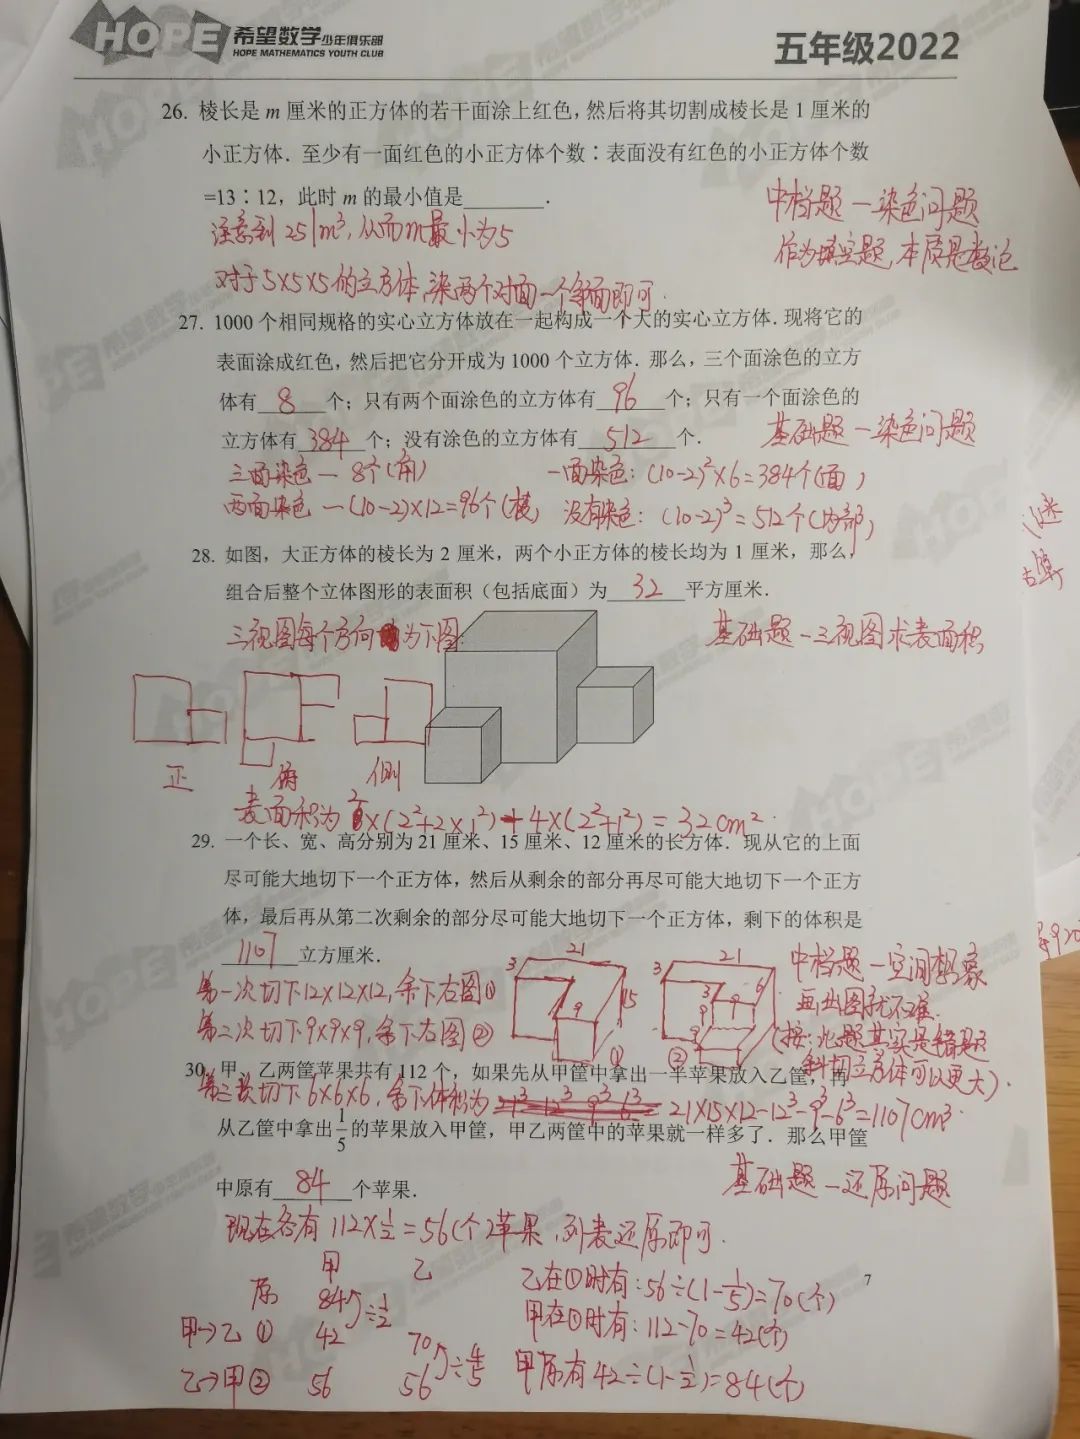 HOPE 希望数学少年俱乐部
HOPE MATHEMATICS YOUTH CLUB
五年级2022
26. 棱长是 m 厘米的正方体的若干面涂上红色，然后将其切割成棱长是 1 厘米的
小正方体．至少有一面红色的小正方体个数：表面没有红色的小正方体个数
=13：12，此时 m 的最小值是________．
注意到 25|m³, 从而m最小为5
中档题—染色问题
作为填空题,本质是数论
对于5×5×5的立方体,染两个对面一个邻面即可.
27. 1000 个相同规格的实心立方体放在一起构成一个大的实心立方体．现将它的
表面涂成红色，然后把它分开成为 1000 个立方体．那么，三个面涂色的立方
体有 8 个；只有两个面涂色的立方体有 96 个；只有一个面涂色的
立方体有 384 个；没有涂色的立方体有 512 个．
基础题—染色问题
三面染色—8个(角)
一面染色: (10-2)²×6=384个(面)
两面染色—(10-2)×12=96个(棱)
没有染色: (10-2)³=512个(内部)
28. 如图，大正方体的棱长为 2 厘米，两个小正方体的棱长均为 1 厘米，那么，
组合后整个立体图形的表面积（包括底面）为 32 平方厘米．
三视图每个方向 为下图:
基础题—三视图求表面积
正 俯 侧
表面积为 2×(2²+2×1²)+4×(2²+1²)=32cm².
29. 一个长、宽、高分别为 21 厘米、15 厘米、12 厘米的长方体．现从它的上面
尽可能大地切下一个正方体，然后从剩余的部分再尽可能大地切下一个正方
体，最后再从第二次剩余的部分尽可能大地切下一个正方体，剩下的体积是
1107 立方厘米．
第一次切下12×12×12,余下右图①
第二次切下9×9×9,余下右图②
3 21 9 15 ①
3 21 3 9 9 6 9 ②
中档题—空间想象
画出图就不难.
(按:此题其实是错题
斜切立方体可以更大).
30. 甲、乙两筐苹果共有 112 个，如果先从甲筐中拿出一半苹果放入乙筐，再
第三次切下6×6×6,余下体积为 21×15×12-12³-9³-6³=1107cm³.
从乙筐中拿出 1/5 的苹果放入甲筐，甲乙两筐中的苹果就一样多了．那么甲筐
中原有 84 个苹果．
基础题—还原问题
现在各有 112×1/2=56(个)苹果,列表还原即可.
甲 乙
原 84 ÷1/2
甲→乙 ① 42 70 ÷4/5
乙→甲 ② 56 56
乙在①时有:56÷(1-1/5)=70(个)
甲在①时有:112-70=42(个)
甲原有 42÷(1-1/2)=84(个)
7